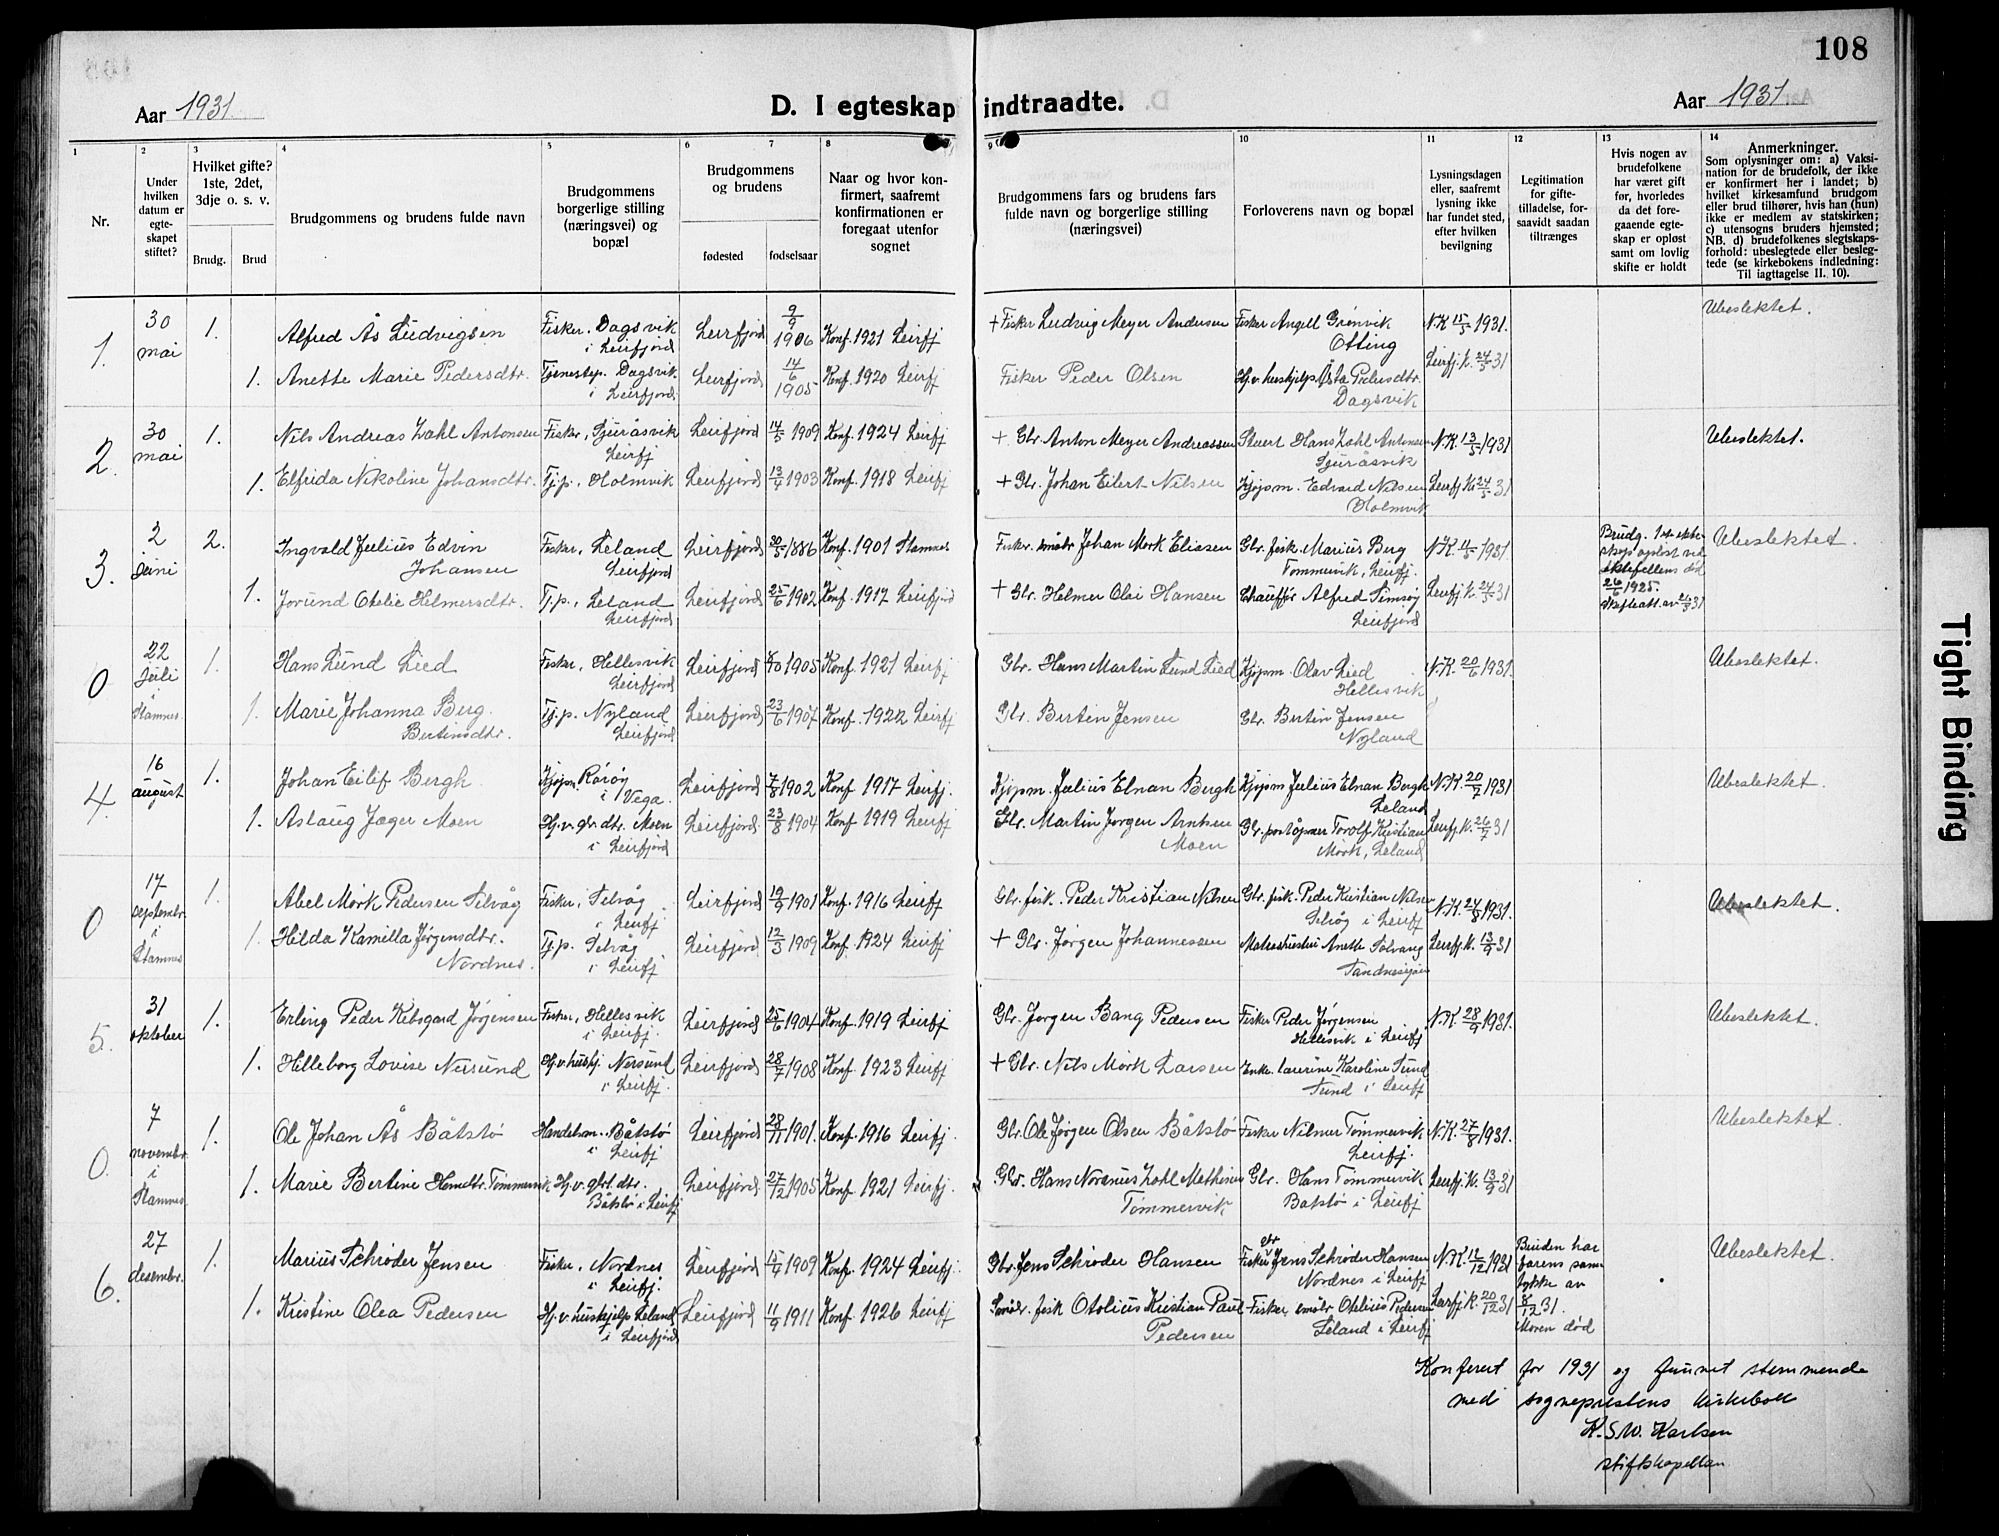 108
Aar 1931
D. I egteskap indtraadte.
Aar 1931
1
Nr.
2
Under hvilken datum er egte-skapet stiftet?
3
Hvilket gifte? 1ste, 2det, 3dje o. s. v.
Brudg.
Brud
4
Brudgommens og brudens fulde navn
5
Brudgommens borgerlige stilling (næringsvei) og bopæl
6
7
Brudgommens og brudens
fødested
fødselsaar
8
Naar og hvor kon-firmert, saafremt konfirmationen er foregaat utenfor sognet
9
Brudgommens fars og brudens fars fulde navn og borgerlige stilling (næringsvei)
10
Forloverens navn og bopæl
11
Lysningsdagen eller, saafremt lysning ikke har fundet sted, efter hvilken bevilgning
12
Legitimation for gifte-tilladelse, for-saavidt saadan tiltrænges
13
Hvis nogen av brudefolkene har været gift før, hvorledes da det fore-gaaende egte-skap er opløst samt om lovlig skifte er holdt
14
Anmerkninger.
Som oplysninger om: a) Vaksi-nation for de brudefolk, der ikke er konfirmert her i landet; b) hvilket kirkesamfund brudgom eller brud tilhører, hvis han (hun) ikke er medlem av statskirken; c) utensogns bruders hjemsted; NB. d) brudefolkenes slegtskaps-forhold: ubeslegtede eller besleg-tede (se kirkebokens indledning: Til iagttagelse II. 10).
1. 30 mai 1. Alfred Ås Ludvigsen Fisker, Dagsvik i Leirfjord Leirfjord 9/9 1906 Konf. 1921 Leirfj + Fisker Ludvig Meyer Andersen Fisker Angell Grønvik Otting N.K. 15/5 1931. Ubeslektet.
1. Anette Marie Pedersdtr. Tjenestep. Dagsvik i Leirfjord Leirfjord 14/6 1905 Konf. 1920 Leirfj Fisker Peder Olsen Hj.v. huskjelp Åsta Pedersdtr. Dagsvik Leirfj. K. 24/5 31
2. 30 mai 1. Nils Andreas Zahl Antonsen Fisker, Sjuråsvik Leirfj Leirfjord 14/5 1909 Konf. 1924 Leirfj + Gbr. Anton Meyer Andreassen Stuert Hans Zahl Antonsen Sjuråsvik N.K. 13/5 1931 Ubeslektet.
1. Elfrida Nikoline Johansdtr. Tj.p., Holmvik Leirfjord 13/4 1903 Konf. 1918 Leirfj + Gbr. Johan Eilert Nilsen Kjøpm. Edvard Nilsen Holmvik Leirfj. K. 24/5 31
3. 2 juni 2. Ingvald Julius Edvin Johansen Fisker, Leland Leirfjord Leirfjord 30/5 1886 Konf. 1901 Stamnes Fisker småbr Johan Mork Eliasen Gbr. fisk. Marius Berg Tømmervik, Leirfj. N.K. 11/5 1931 Brudg. 1ste ekteskap opløst ved ektefellens død 26/6 1925. Skifteatt. av 26/5 31 Ubeslektet.
1. Jorund Otelie Helmersdtr. Tj.p., Leland Leirfjord Leirfjord 25/6 1902 Konf. 1917 Leirfjord + Gbr. Helmer Olai Hansen Chauffør Alfred Simsøy Leirfjord Leirfj. K. 24/5 31
0 22 juli i Stamnes. 1. Hans Lund Lied Fisker, Hellesvik Leirfjord Leirfjord 8/10 1905 Konf. 1921 Leirfj Gbr. Hans Martin Lund Lied Kjøpm. Olav Lied Hellesvik N.K. 20/6 1931. Ubeslektet.
1. Marie Johanna Berg. Bertinsdtr. Tj.p. Nyland Leirfjord Leirfjord 23/6 1907 Konf. 1922 Leirfj Gbr. Bertin Jensen Gbr. Bertin Jensen Nyland
4. 16 august 1. Johan Eilif Bergh Kjøpm. Rørøy i Vega. Leirfjord 7/8 1902 Konf 1917 Leirfj. Kjøpm. Julius Elnan Bergh Kjøpm Julius Elnan Bergh Leland N.K. 20/7 1931 Ubeslektet.
1. Aslaug Jæger Moen Hj.v. gbr.dtr. Moen i Leirfjord Leirfjord. 23/8 1904 Konf 1919 Leirfj Gbr. Martin Jørgen Arntsen Moen Gbr. poståpner Torolf Kristian Mørk, Leland Leirfj. K. 26/7 31
0 17 septembr. i Stamnes 1. Abel Mørk Pedersen Selvåg Fisker, Selvåg i Leirfj Leirfjord 19/9 1901 Konf. 1916 Leirfj Gbr. fisk. Peder Kristian Nilsen Gbr. fisk. Peder Kristian Nilsen Selvåg i Leirfj N.K. 24/8 1931. Ubeslektet.
1. Hilda Kamilla Jørgensdtr. Nordnes. Tj.p. Selvåg i Leirfj Leirfjord 12/3 1909 Konf. 1924 Leirfj + Gbr. Jørgen Johannessen Anette Solvang Sandnessjøen Leirfj. K. 13/9 31
5. 31 oktober 1. Erling Peder Kibsgard Jørgensen Fisker, Hellesvik i Leirfj. Leirfjord 25/6 1904 Konf. 1919 Leirfj Gbr. Jørgen Bang Pedersen Fisker Peder Jørgensen Hellesvik i Leirfj N.K. 28/9 1931. Ubeslektet.
1. Hilleborg Lovise Nersund Hj.v. huskj. Nersund i Leirfj. Leirfjord 28/7 1908 Konf. 1923 Leirfj + Gbr. Nils Mørk Larsen Enke Laurine Karoline Sund Sund i Leirfj
0. 7 novembr. i Stamnes 1. Ole Johan Ås Båtstø Handelsm. Båtstø i Leirfj Leirfjord 28/11 1901. Konf. 1916 Leirfj. Gbr. Ole Jørgen Olsen Båtstø Fisker Nilmer Tømmervik Leirfj. N.K. 27/8 1931. Ubeslektet.
1. Marie Bertine Tømmervik Hj.v. gbr.dtr. Båtstø i Leirfj Leirfjord 27/12 1905 Konf. 1921 Leirfj. Gbr. Hans Norenus Zahl Mathisen Tømmervik Gbr. Hans Tømmervik Båtstø i Leirfj Leirfj. K. 13/9 31
6. 27 desembr. 1. Marius Schrøder Jensen Fisker, Nordnes i Leirfj. Leirfjord 15/4 1909 Konf. 1924 Leirfj. Gbr. Jens Schrøder Hansen Fisker gbr Jens Schrøder Hansen Nordnes i Leirfj N.K. 12/12 1931 Bruden har farens samtykke av 8/12 31. Moren død Ubeslektet.
1. Kristine Olea Pedersen Hj.v. huskjelp Leland i Leirfjord Leirfjord 11/9 1911 Konf. 1926 Leirfj Småbr. fisk Otolius Kristian Paul Pedersen Fisker småbr Otelius Pedersen Leland i Leirfj Leirfj. K. 20/12 31
Konferert for 1931 og funnet stemmende
med sogneprestens kirkebok
K.S.W. Karlsen
stiftskapellan
Tight Binding